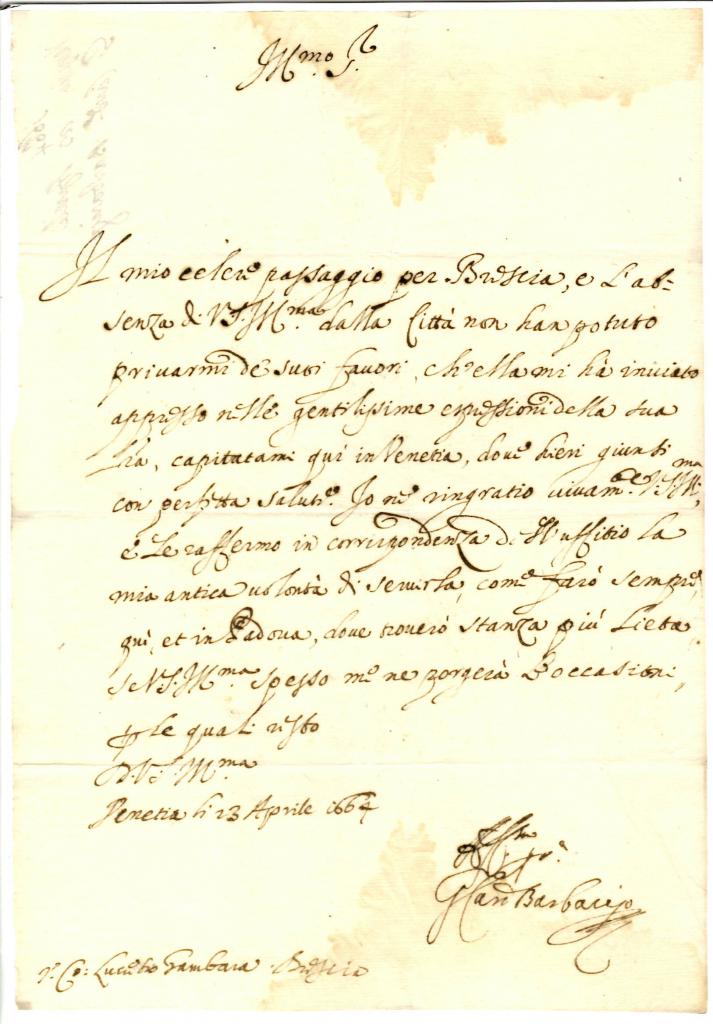 Ill.mo S.r
Il mio celere passaggio per Brescia, e l'ab-
senza di V.S. Ill.ma dalla Città non han potuto
privarmi de suoi favori, ch'ella mi hà inviato
appresso nelle gentilissime espressioni della sua
l'ra, capitatami quì in Venetia, dove hieri giunsi
con perfetta salute. Io ne ringratio vivam.te V.S. Ill.ma,
e le raffermo in corrispondenza di
mia antica volontà di servirla, come farò sempre,
quì, et in Padova, dove troverò stanza più lieta,
se V.S. Ill.ma spesso me ne porgerà l'occasioni,
p le quali resto
D. V.S. Ill.ma
Venetia li 23 Aprile 1664
Il Card Barbarigo
Co: Lucretio Gambara Brescia